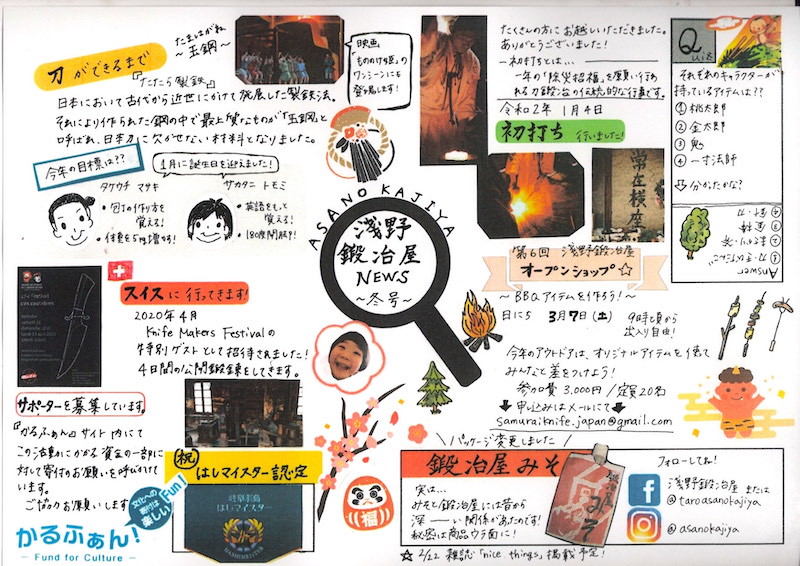 刀ができるまで
たまはがね
~玉鋼~
『たたら製鉄』
日本において古代から近世にかけて発展した製鉄法。
それにより作られた鋼の中で最上質なものが「玉鋼」と
呼ばれ、日本刀に欠かせない材料となりました。
映画
「もののけ姫」の
ワンシーンにも
登場します!
今年の目標は??
1月に誕生日を迎えました!
タケウチ マサキ
・包丁の作り方を
覚える!
・体重を5kg増やす!
サカタニ トモミ
・英語をもっと
覚える!
・180度開脚!
たくさんの方にお越しいただきました。
ありがとうございました!
ー初打ちとは…
一年の「除災招福」を願い行われ
る刀鍛冶の伝統的な行事です。
令和2年 1月4日
初打ち 行いました!
常在横座
Quiz
それぞれのキャラクターが
持っているアイテムは??
①桃太郎
②金太郎
③鬼
④一寸法師
分かったかな?
Answer
ASANO KAJIYA
浅野
鍛冶屋
NEWS
~冬号~
スイスに行ってきます!
2020年4月
Knife Makers Festivalの
特別ゲストとして招待されました!
4日間の公開鍛錬をしてきます。
第6回 浅野鍛冶屋
オープンショップ☆
~BBQアイテムを作ろう!~
日にち 3月7日(土) 9時頃から
出入り自由!
今年のアウトドアは、オリジナルアイテムを使って
みんなと差をつけよう!
参加費 3,000円/定員20名
申し込みはメールにて
samuraiknife.japan@gmail.com
サポーターを募集しています。
『かるふぁん』サイト内にて
この活動にかかる資金の一部に
対して寄付のお願いを呼びかけて
います。
ご協力お願いします
文化への
寄付は
楽しい
Fun!
かるふぁん!
— Fund for Culture —
祝 はしマイスター認定
岐阜羽島
はしマイスター
HASHIMEISTER
福
\パッケージ変更しました/
鍛冶屋みそ
実は…
みそと鍛冶屋には昔から
深ーーい関係があったのです!
秘密は商品ウラ面に!
鍛冶屋
みそ
フォローしてね!
浅野鍛冶屋 または
@taroasanokajiya
@asanokajiya
☆2/22 雑誌「nice things」掲載予定!